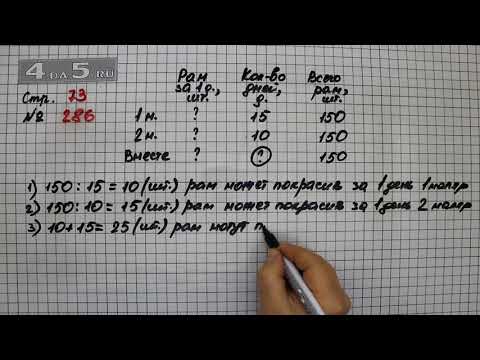 4 DA 5.RU
Стр. 73
№ 286
Рам за 1 д., шт. Кол-во дней, д. Всего рам, шт.
1 м. ? 15 150
2 м. ? 10 150
Вместе ? ? 150
1) 150 : 15 = 10 (шт.) рам может покрасив за 1 день 1 маляр
2) 150 : 10 = 15 (шт.) рам может покрасив за 1 день 2 маляр
3) 10 + 15 = 25 (шт.) рам могут п